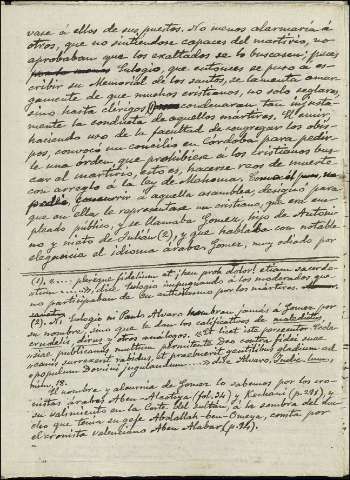 vase á ellos de sus puestos. No menos alarmaría á
otros, que no sintiéndose capaces del martirio, no
aprobaban que los exaltados se lo buscasen; pues
Eulogio, que entonces se puso á es-
cribir su Memorial de los santos, se lamenta amar-
gamente de que muchos cristianos, no solo seglares,
sino hasta clérigos (1) condenaran tan injusta-
mente la conducta de aquellos mártires. El emir,
haciendo uso de la facultad de congregar los obis-
pos, convocó un concilio en Córdoba para pedir-
le una orden que prohibiera á los cristianos bus-
car al martirio, esto es, hacerse reos de muerte
con arreglo á la ley de Mahoma.
concurrir á aquella asamblea, designó para
que en ella le representase un cristiano, que era em-
pleado público, y se llamaba Gomez, hijo de Antonia-
no y nieto de Julián (2), y que hablaba con notable
elegancia el idioma árabe. Gomez, muy odiado por
(1) «..... plerique fidelium et; heu proh dolor! etiam sacerdo-
tum ....», dice Eulogio impugnando á los moderados que
no participaban de su entusiasmo por los mártires.
(2). Ni Eulogio ni Paulo Alvaro nombran jamás á Gomez por
su nombre, sino que le dan los calificativos de
crudelis, dirus y otros análogos. «Et licet iste persecutor Eccle-
siae publicanus, multum admittente Deo contra fideles suae
necanis surrexerit rabidus, et praebuerit gentilibus gladium ad
populum Domini jugulandum ......» dice Alvaro, Indic. lum.,
núm. 18.
El nombre y alcurnia de Gomez lo sabemos por los cro-
nistas árabes Aben-Alcotiya (fol. 34) y Koxhani (p. 291), y
su valimiento en la Corte del Sultán, á la sombra del em-
pleo que tenía su gefe Abdallah-ben-Omeya, consta por
el cronista valenciano Aben Alabar (p. 94).